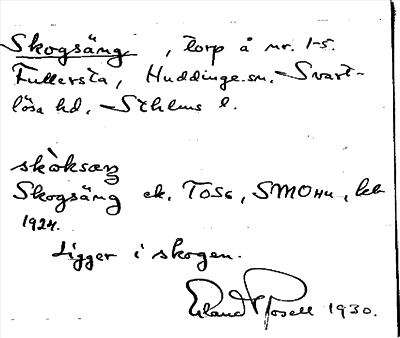 Skogsäng, torp å nr. 1-5.
Fullersta, Huddinge sn. Svart-
lösa hd. Sthlms l.
skòksæŋ
Skogsäng ek. TOSG, SMOHu, kbl
1924.
Ligger i skogen.
Erland Rosell 1930.